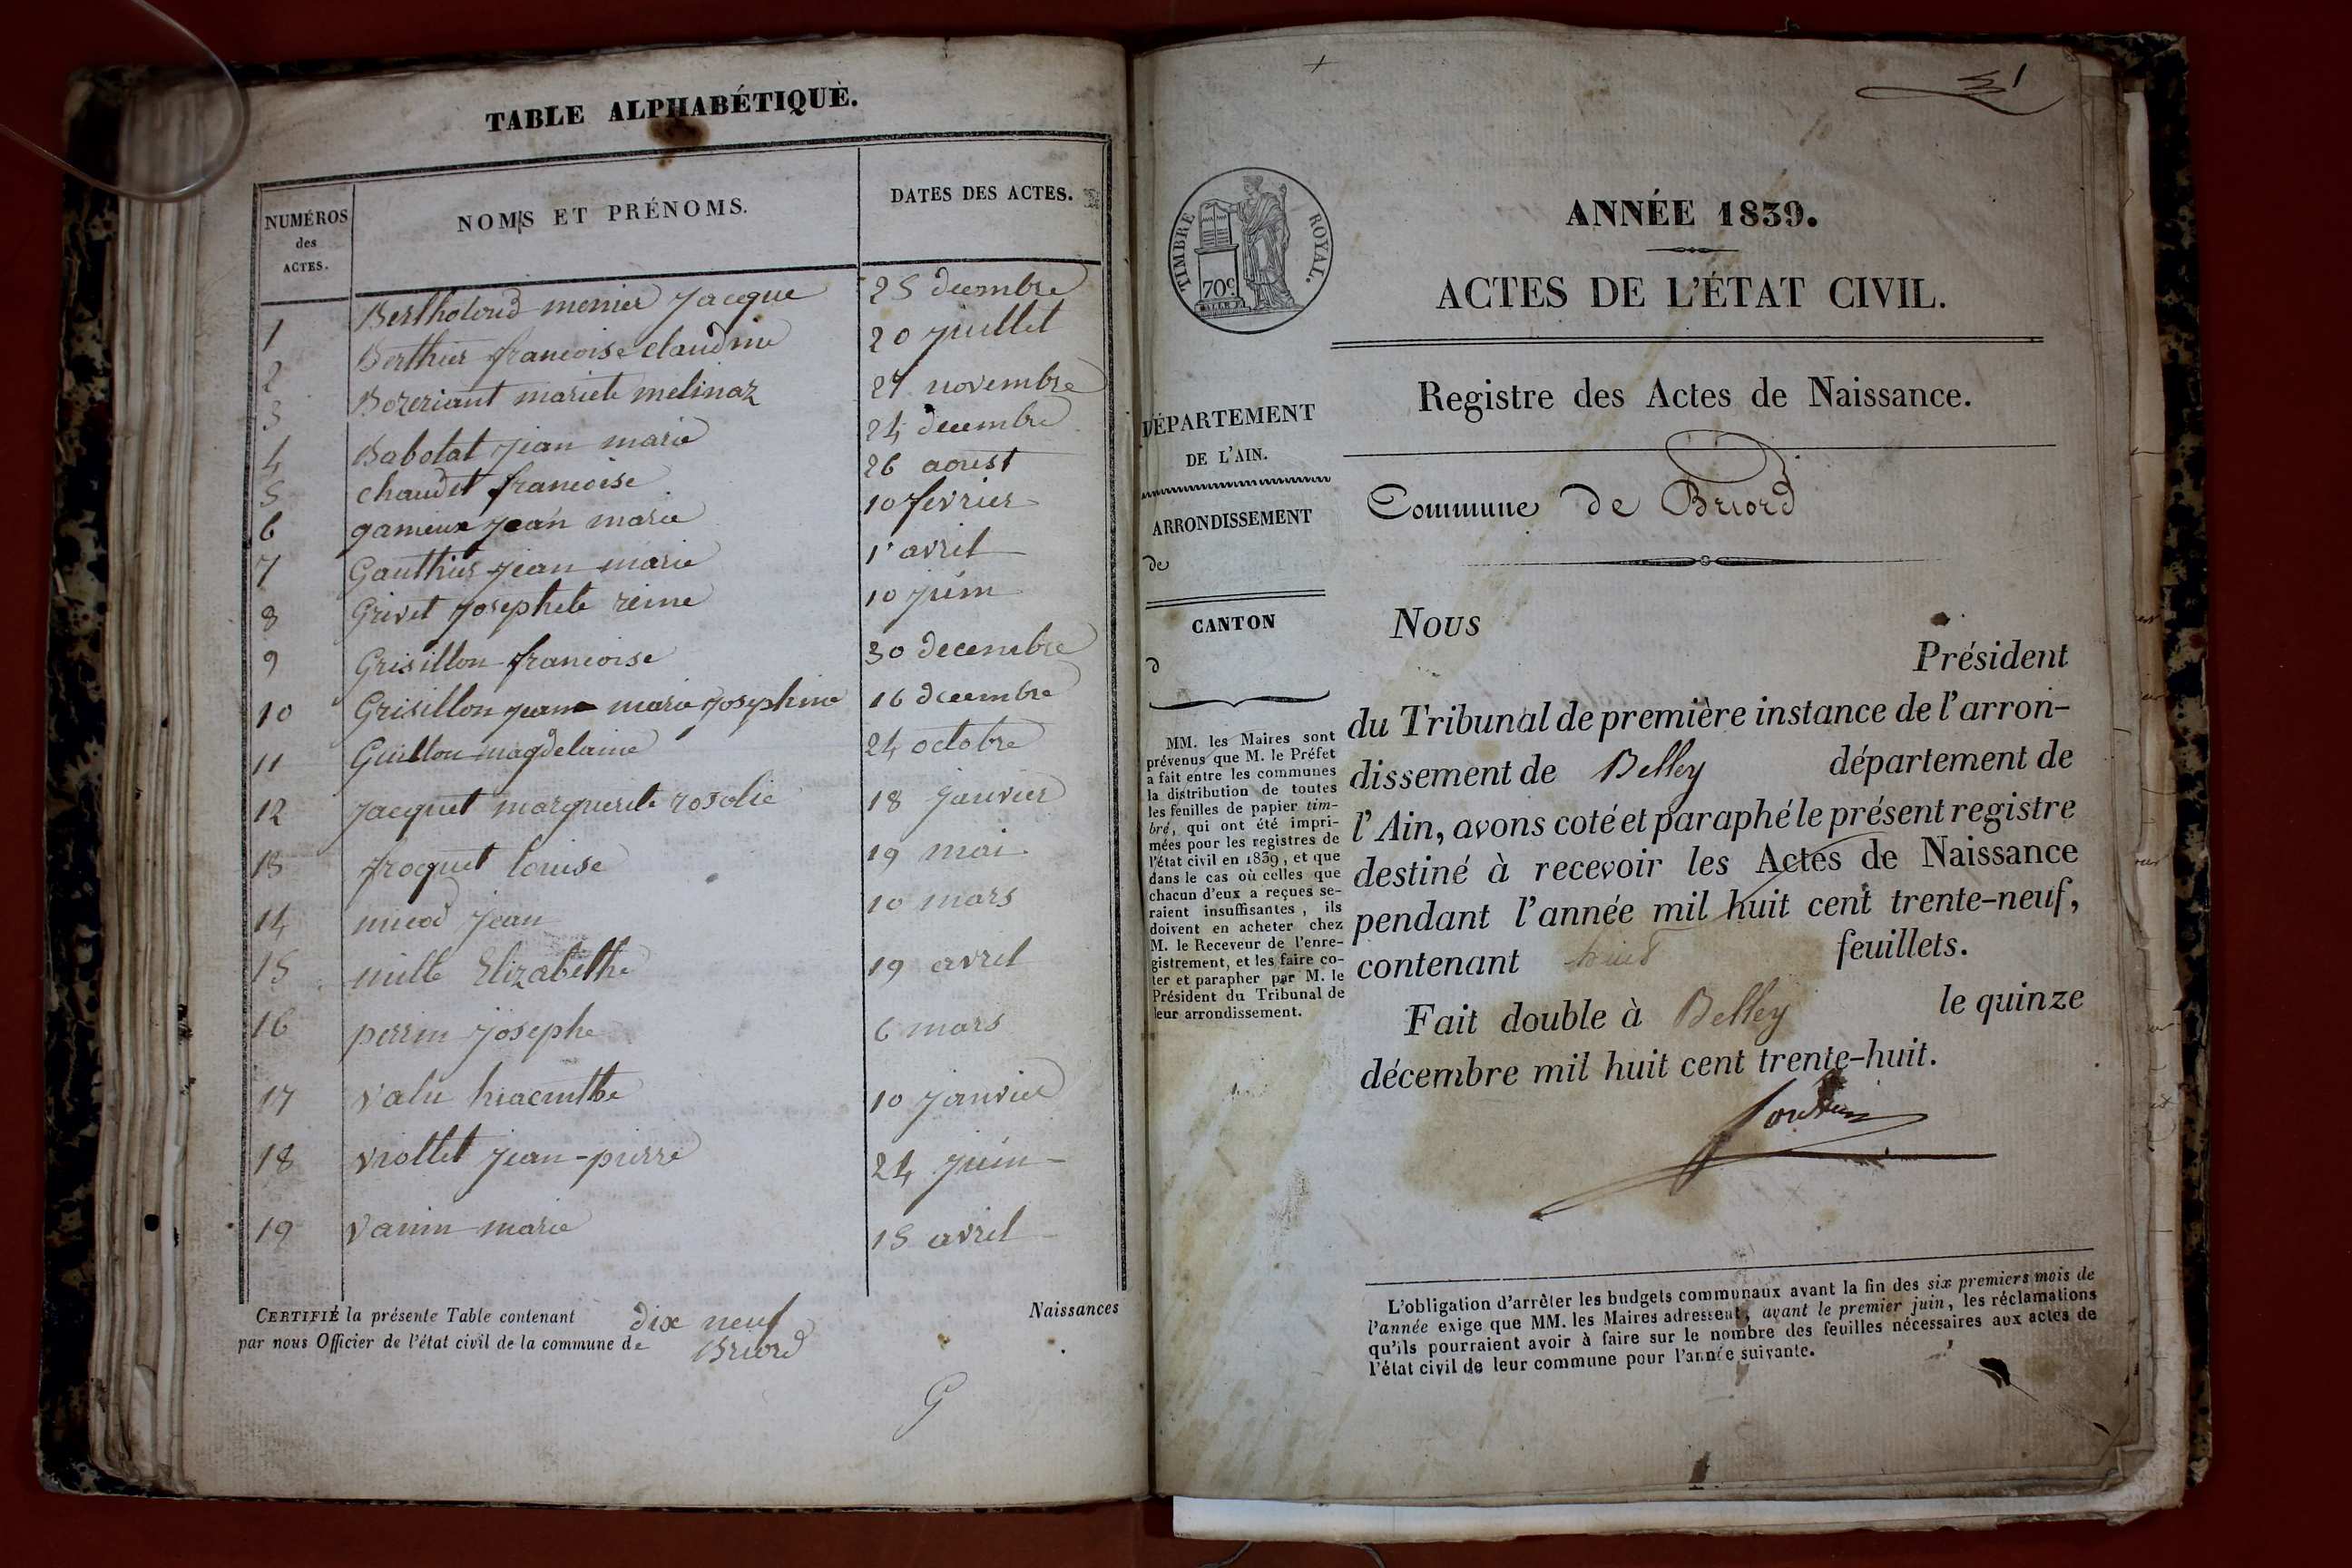 TABLE ALPHABÉTIQUE.
NUMÉROS
des
ACTES.
NOMS ET PRÉNOMS.
DATES DES ACTES.
1 Bertholoud monier Jacque 25 decembre
2 Berthier francoise claudine 20 juillet
3 mariete melinaz 27 novembre
4 Babolat jean marie 24 decembre
5 chaudet francoise 26 aoust
6 jean marie 10 fevrier
7 Gauthier jean marie 1er avril
8 Grivet josephete reine 10 juin
9 Grisillon francoise 30 decembre
10 Grisillon jeanne marie josephine 16 decembre
11 Guillon magdelaine 24 octobre
12 jacquet marguerite rosolie 18 janvier
13 louise 19 mai
14 micod jean 10 mars
15 mille Elizabethe 19 avril
16 perrin josephe 6 mars
17 hiacinthe 10 janvier
18 viollet jean-pierre 24 juin
19 vanin marie 15 avril
CERTIFIÉ la présente Table contenant dix neuf Naissances
par nous Officier de l'état civil de la commune de Briord
G
1
TIMBRE ROYAL.
70c
ANNÉE 1839.
ACTES DE L'ÉTAT CIVIL.
Registre des Actes de Naissance.
DÉPARTEMENT
DE L'AIN.
ARRONDISSEMENT
de
CANTON
d
Commune de Briord
MM. les Maires sont
prévenus que M. le Préfet
a fait entre les communes
la distribution de toutes
les feuilles de papier tim-
bré, qui ont été impri-
mées pour les registres de
l'état civil en 1839, et que
dans le cas où celles que
chacun d'eux a reçues se-
raient insuffisantes, ils
doivent en acheter chez
M. le Receveur de l'enre-
gistrement, et les faire co-
ter et parapher par M. le
Président du Tribunal de
leur arrondissement.
Nous
Président
du Tribunal de première instance de l'arron-
dissement de Belley département de
l'Ain, avons coté et paraphé le présent registre
destiné à recevoir les Actes de Naissance
pendant l'année mil huit cent trente-neuf,
contenant huit feuillets.
Fait double à Belley le quinze
décembre mil huit cent trente-huit.
L'obligation d'arrêter les budgets communaux avant la fin des six premiers mois de
l'année exige que MM. les Maires adressent, avant le premier juin, les réclamations
qu'ils pourraient avoir à faire sur le nombre des feuilles nécessaires aux actes de
l'état civil de leur commune pour l'année suivante.